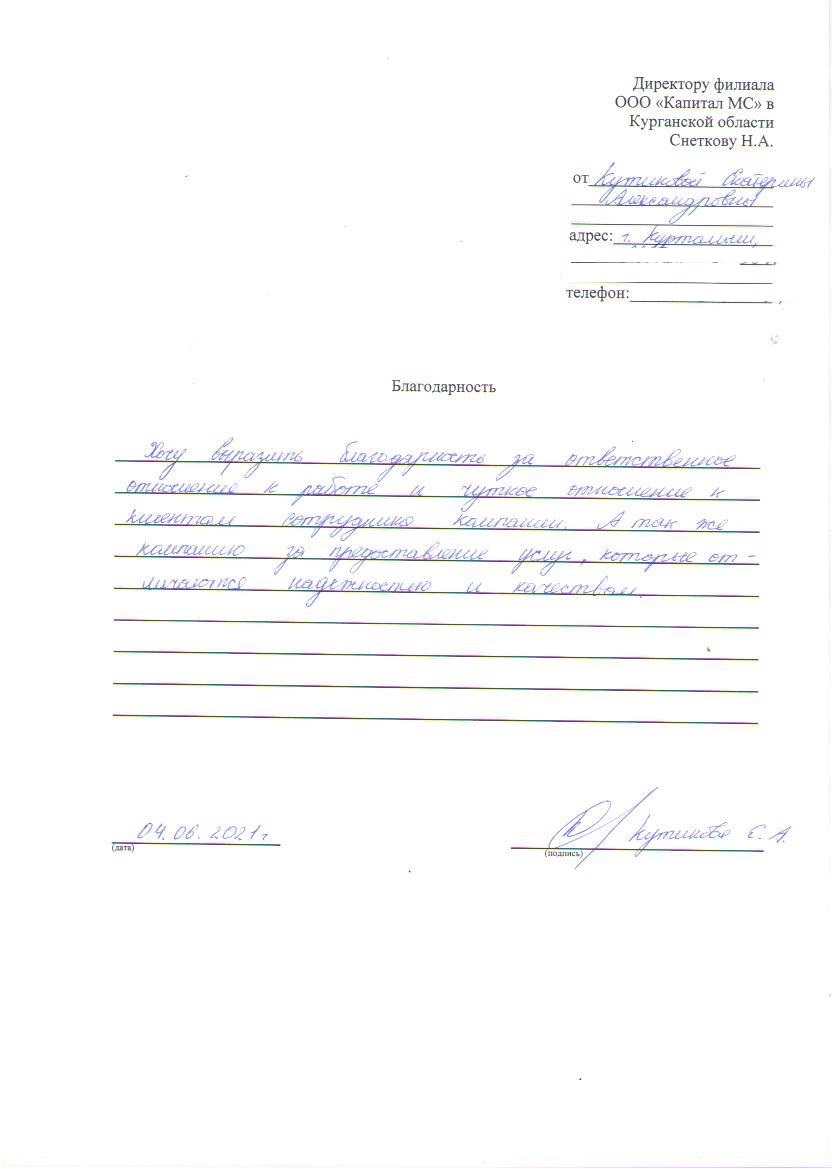 Директору филиала
ООО «Капитал МС» в
Курганской области
Снеткову Н.А.
от Кутиковой Екатерины
Александровны
адрес: г. Куртамыш,
телефон:
Благодарность
Хочу выразить благодарность за ответственное
отношение к работе и чуткое отношение к
клиентам сотрудника компании. А так же
компанию за предоставление услуг, которые от-
личаются надежностью и качеством.
04.06.2021г
(дата)
Кутикова Е. А.
(подпись)